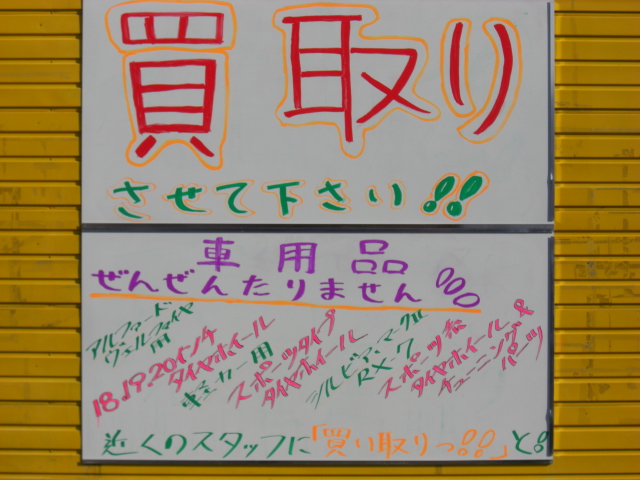 買取り
させて下さい!!
車用品
ぜんぜんたりません!!!
アルファード
ヴェルファイヤ
用
18.19.20インチ
タイヤホイール
軽カー用
スポーツタイプ
タイヤホイール
シルビア・マークⅡ
RX-7
スポーツ系
タイヤホイール&
チューニング
パーツ
近くのスタッフに「買い取りっ!!」と!